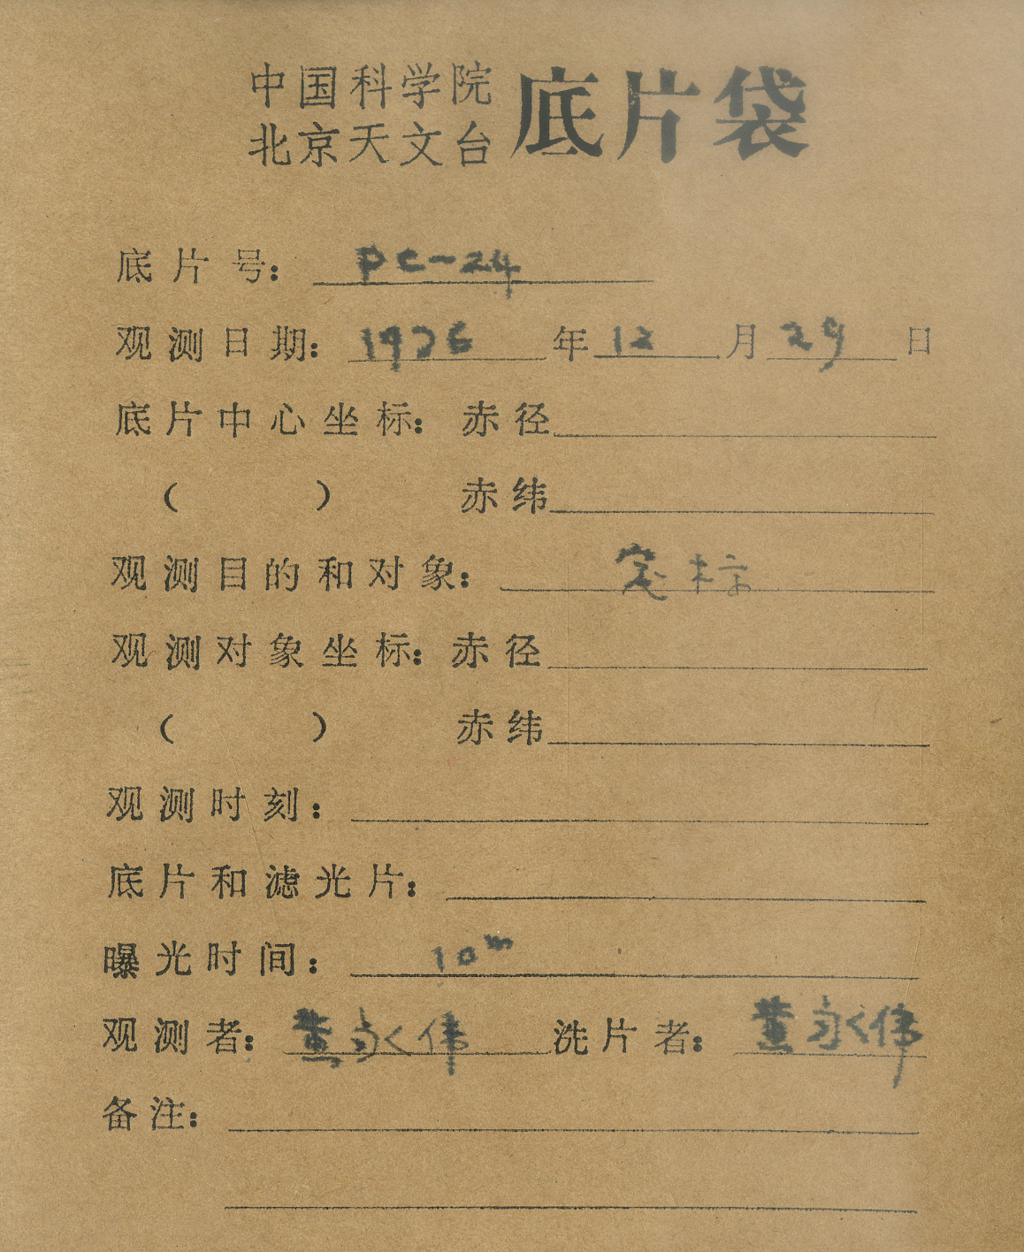 中国科学院
北京天文台
底片袋
底片号: PC-24
观测日期: 1976年12月29日
底片中心坐标: 赤径
( ) 赤纬
观测目的和对象: 定标
观测对象坐标: 赤径
( ) 赤纬
观测时刻:
底片和滤光片:
曝光时间: 10ᵐ
观测者: 黄永伟 洗片者: 黄永伟
备注: